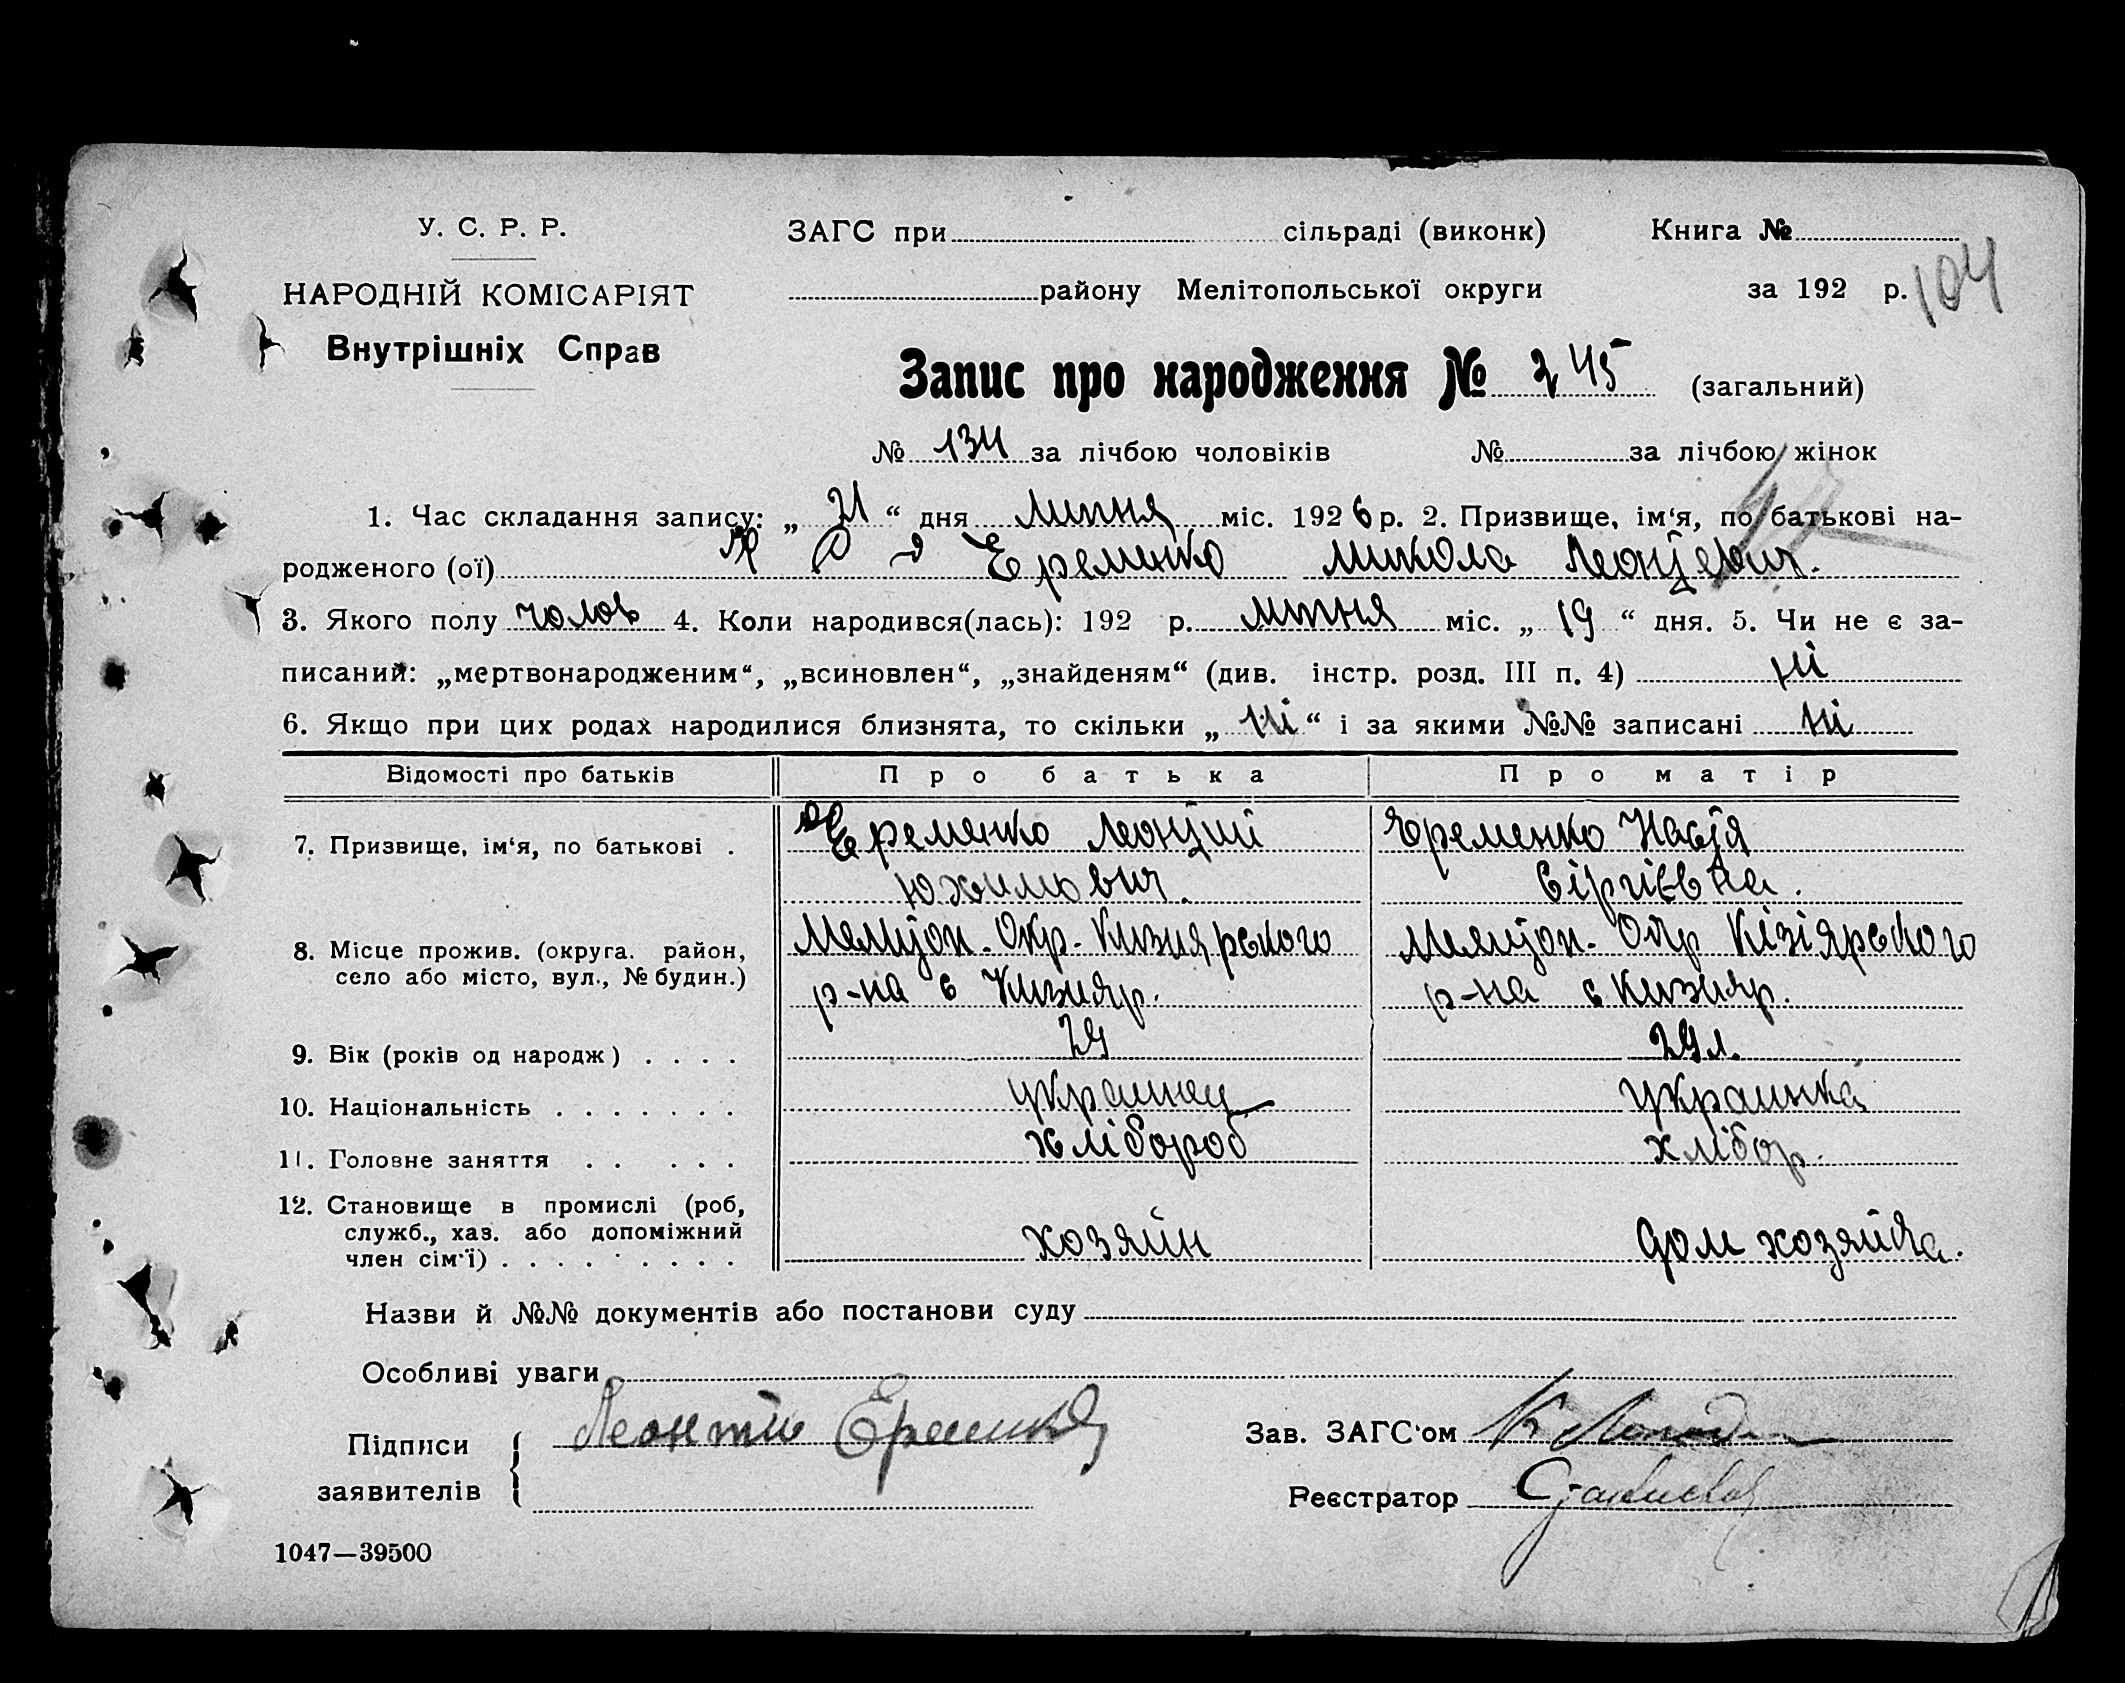 У. С. Р. Р.
НАРОДНІЙ КОМІСАРІЯТ
Внутрішніх Справ
ЗАГС при сільраді (виконк) Книга №
району Мелітопольської округи за 192 р. 104
Запис про народження № 245 (загальний)
№ 134 за лічбою чоловіків № за лічбою жінок
1. Час складання запису: „ 21 “ дня липня міс. 1926 р. 2. Призвище, ім‘я, по батькові на-
родженого (ої) Еременко Микола Леонтьевич.
3. Якого полу чолов 4. Коли народився(лась): 192 р. липня міс. „ 19 “ дня. 5. Чи не є за-
писаний: „мертвонародженим“, „всиновлен“, „знайденям“ (див. інстр. розд. III п. 4) ні
6. Якщо при цих родах народилися близнята, то скільки „ ні “ і за якими №№ записані ні
Відомості про батьків Про батька Про матір
7. Призвище, ім‘я, по батькові . Еременко Леонтий Еременко Настя
Юхимович. Сіргієвна.
8. Місце прожив. (округа. район, Мелитоп. Окр. Кизиярского Мелитоп. Окр Кізіярского
село або місто, вул., № будин.) р-на с Кизияр. р-на с Кизияр.
9. Вік (років од народж) . . . . 29 29 л.
10. Національність . . . . . . . украинец украинка
11. Головне заняття . . . . . хлібороб хлібор.
12. Становище в промислі (роб,
служб., хаз. або допоміжний хозяйн дом хозяйка.
член сім‘ї) . . . . . . . .
Назви й №№ документів або постанови суду
Особливі уваги
Підписи Леонтий Еременко Зав. ЗАГС‘ом
заявителів Реєстратор
1047—39500